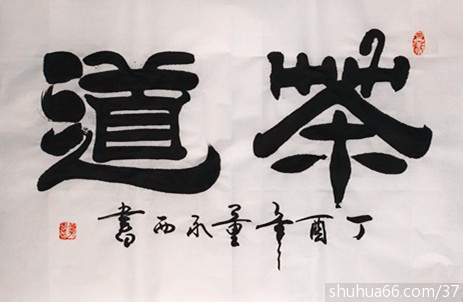 茶道
丁酉年量承西書
shuhua66.com/37